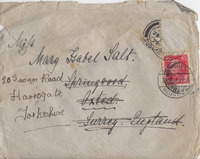 Miss
Mary Isabel Salt.
Springwood
Road
Harrogate
Oxted.
Yorkshire
Surrey. England.